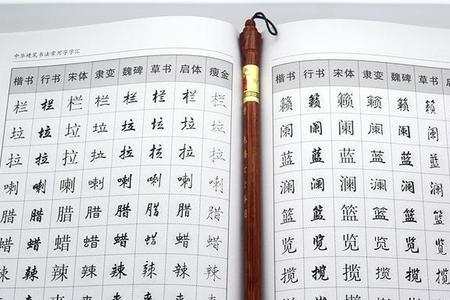 中华硬笔书法常用字字汇
楷书 行书 宋体 隶变 魏碑 草书 启体 瘦金
栏 栏 栏 栏 栏 栏 栏 栏
垃 垃 垃 垃 垃 垃 垃 垃
拉 拉 拉 拉 拉 拉 拉 拉
喇 喇 喇 喇 喇 喇 喇 喇
腊 腊 腊 腊 腊 腊 腊 腊
蜡 蜡 蜡 蜡 蜡 蜡 蜡 蜡
辣 辣 辣 辣 辣 辣 辣 辣
来 来 来 来 来 来 来 来
楷书 行书 宋体 隶变 魏碑 草书
籁 籁 籁 籁 籁 籁
阑 阑 阑 阑 阑 阑
蓝 蓝 蓝 蓝 蓝 蓝
澜 澜 澜 澜 澜 澜
篮 篮 篮 篮 篮 篮
览 览 览 览 览 览
揽 揽 揽 揽 揽 揽